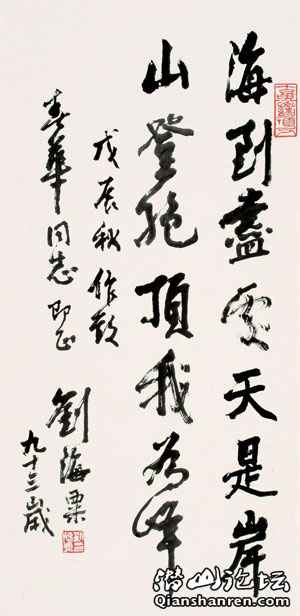 海到盡處天是岸
山登絶頂我為峰
戊辰秋作致
春華同志即正
劉海粟
九十三歲
潜山论坛
Qianshanren.com